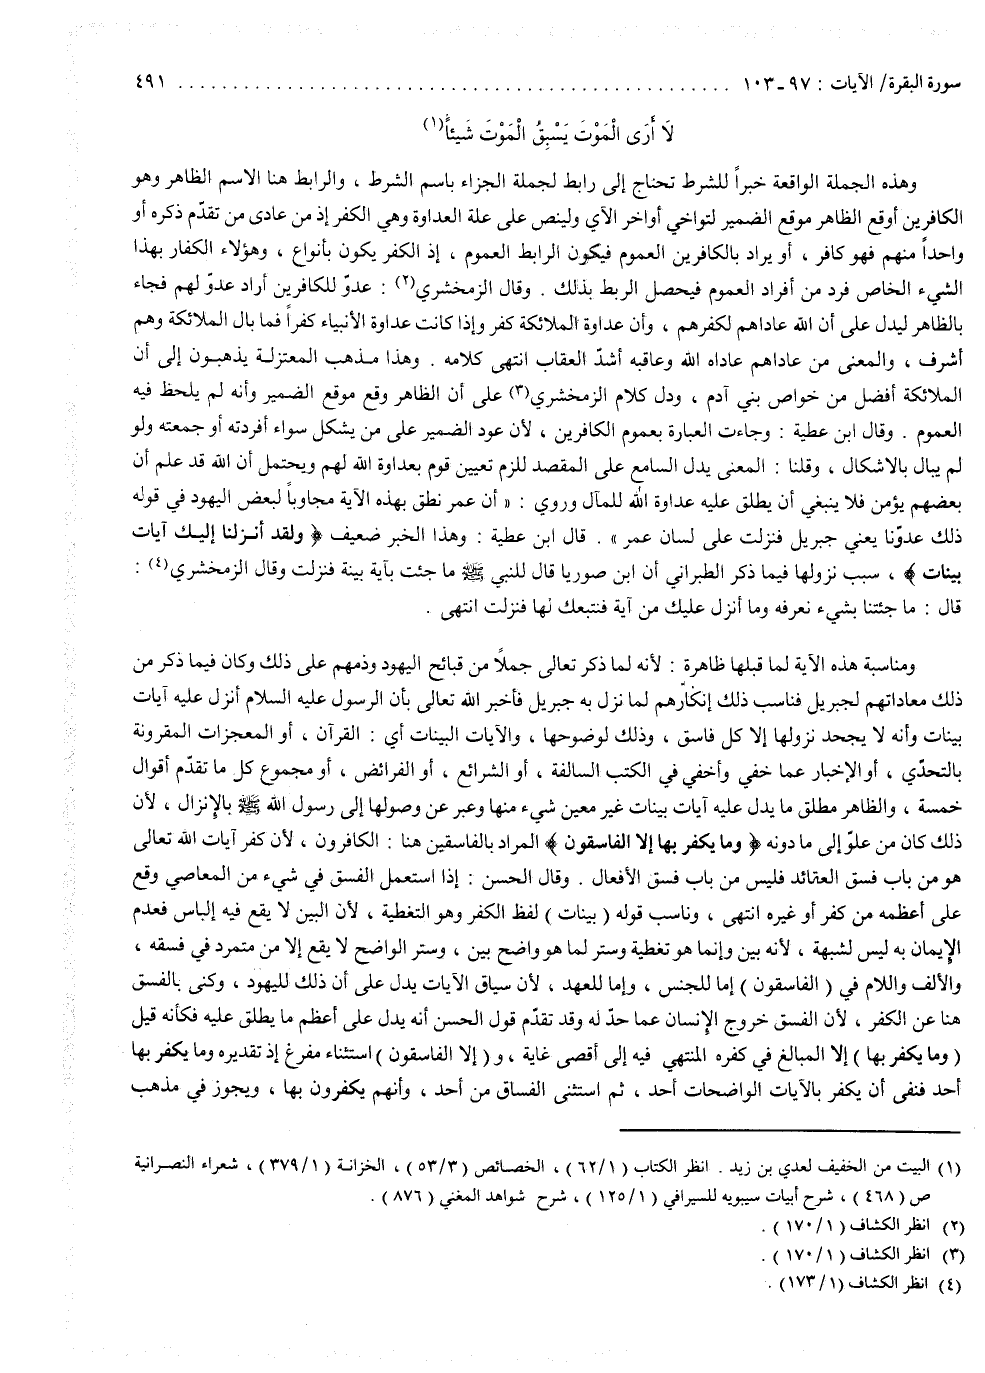 سورة البقرة/ الآيات : ٩٧ ـ ١٠٣ ........................................ ٤٩١
لَا أَرَى الْمَوْتَ يَسْبِقُ الْمَوْتَ شَيئاً(١)
وهذه الجملة الواقعة خبراً للشرط تحتاج إلى رابط لجملة الجزاء باسم الشرط ، والرابط هنا الاسم الظاهر وهو
الكافرين أوقع الظاهر موقع الضمير لتواخي أواخر الآي ولينص على علة العداوة وهي الكفر إذ من عادى من تقدّم ذكره أو
واحداً منهم فهو كافر ، أو يراد بالكافرين العموم فيكون الرابط العموم ، إذ الكفر يكون بأنواع ، وهؤلاء الكفار بهذا
الشيء الخاص فرد من أفراد العموم فيحصل الربط بذلك . وقال الزمخشري(٢) : عدوّ للكافرين أراد عدوّ لهم فجاء
بالظاهر ليدل على أن الله عاداهم لكفرهم ، وأن عداوة الملائكة كفر وإذا كانت عداوة الأنبياء كفراً فما بال الملائكة وهم
أشرف ، والمعنى من عاداهم عاداه الله وعاقبه أشدّ العقاب انتهى كلامه . وهذا مذهب المعتزلة يذهبون إلى أن
الملائكة أفضل من خواص بني آدم ، ودل كلام الزمخشري(٣) على أن الظاهر وقع موقع الضمير وأنه لم يلحظ فيه
العموم . وقال ابن عطية : وجاءت العبارة بعموم الكافرين ، لأن عود الضمير على من يشكل سواء أفردته أو جمعته ولو
لم يبال بالاشكال ، وقلنا : المعنى يدل السامع على المقصد للزم تعيين قوم بعداوة الله لهم ويحتمل أن الله قد علم أن
بعضهم يؤمن فلا ينبغي أن يطلق عليه عداوة الله للمآل وروي : « أن عمر نطق بهذه الآية مجاوباً لبعض اليهود في قوله
ذلك عدوّنا يعني جبريل فنزلت على لسان عمر » . قال ابن عطية : وهذا الخبر ضعيف ﴿ ولقد أنزلنا إليك آيات
بينات ﴾ ، سبب نزولها فيما ذكر الطبراني أن ابن صوريا قال للنبي ﷺ ما جئت بآية بينة فنزلت وقال الزمخشري(٤) :
قال : ما جئتنا بشيء نعرفه وما أنزل عليك من آية فنتبعك لها فنزلت انتهى .
ومناسبة هذه الآية لما قبلها ظاهرة : لأنه لما ذكر تعالى جملاً من قبائح اليهود وذمهم على ذلك وكان فيما ذكر من
ذلك معاداتهم لجبريل فناسب ذلك إنكارهم لما نزل به جبريل فأخبر الله تعالى بأن الرسول عليه السلام أنزل عليه آيات
بينات وأنه لا يجحد نزولها إلا كل فاسق ، وذلك لوضوحها ، والآيات البينات أي : القرآن ، أو المعجزات المقرونة
بالتحدّي ، أو الإخبار عما خفي وأخفي في الكتب السالفة ، أو الشرائع ، أو الفرائض ، أو مجموع كل ما تقدّم أقوال
خمسة ، والظاهر مطلق ما يدل عليه آيات بينات غير معين شيء منها وعبر عن وصولها إلى رسول الله ﷺ بالإنزال ، لأن
ذلك كان من علوّ إلى ما دونه ﴿ وما يكفر بها إلا الفاسقون ﴾ المراد بالفاسقين هنا : الكافرون ، لأن كفر آيات الله تعالى
هو من باب فسق العقائد فليس من باب فسق الأفعال . وقال الحسن : إذا استعمل الفسق في شيء من المعاصي وقع
على أعظمه من كفر أو غيره انتهى ، وناسب قوله ( بينات ) لفظ الكفر وهو التغطية ، لأن البين لا يقع فيه إلباس فعدم
الإيمان به ليس لشبهة ، لأنه بين وإنما هو تغطية وستر لما هو واضح بين ، وستر الواضح لا يقع إلا من متمرد في فسقه ،
والألف واللام في ( الفاسقون ) إما للجنس ، وإما للعهد ، لأن سياق الآيات يدل على أن ذلك لليهود ، وكنى بالفسق
هنا عن الكفر ، لأن الفسق خروج الإنسان عما حدّ له وقد تقدّم قول الحسن أنه يدل على أعظم ما يطلق عليه فكأنه قيل
( وما يكفر بها ) إلا المبالغ في كفره المنتهي فيه إلى أقصى غاية ، و ( إلا الفاسقون ) استثناء مفرغ إذ تقديره وما يكفر بها
أحد فنفى أن يكفر بالآيات الواضحات أحد ، ثم استثنى الفساق من أحد ، وأنهم يكفرون بها ، ويجوز في مذهب
(١) البيت من الخفيف لعدي بن زيد . انظر الكتاب ( ٦٢/١ ) ، الخصائص ( ٥٣/٣ ) ، الخزانة ( ٣٧٩/١ ) ، شعراء النصرانية
ص ( ٤٦٨ ) ، شرح أبيات سيبويه للسيرافي ( ١٢٥/١ ) ، شرح شواهد المغني ( ٨٧٦ ) .
(٢) انظر الكشاف ( ١٧٠/١ ) .
(٣) انظر الكشاف ( ١٧٠/١ ) .
(٤) انظر الكشاف (١٧٣/١ ) .